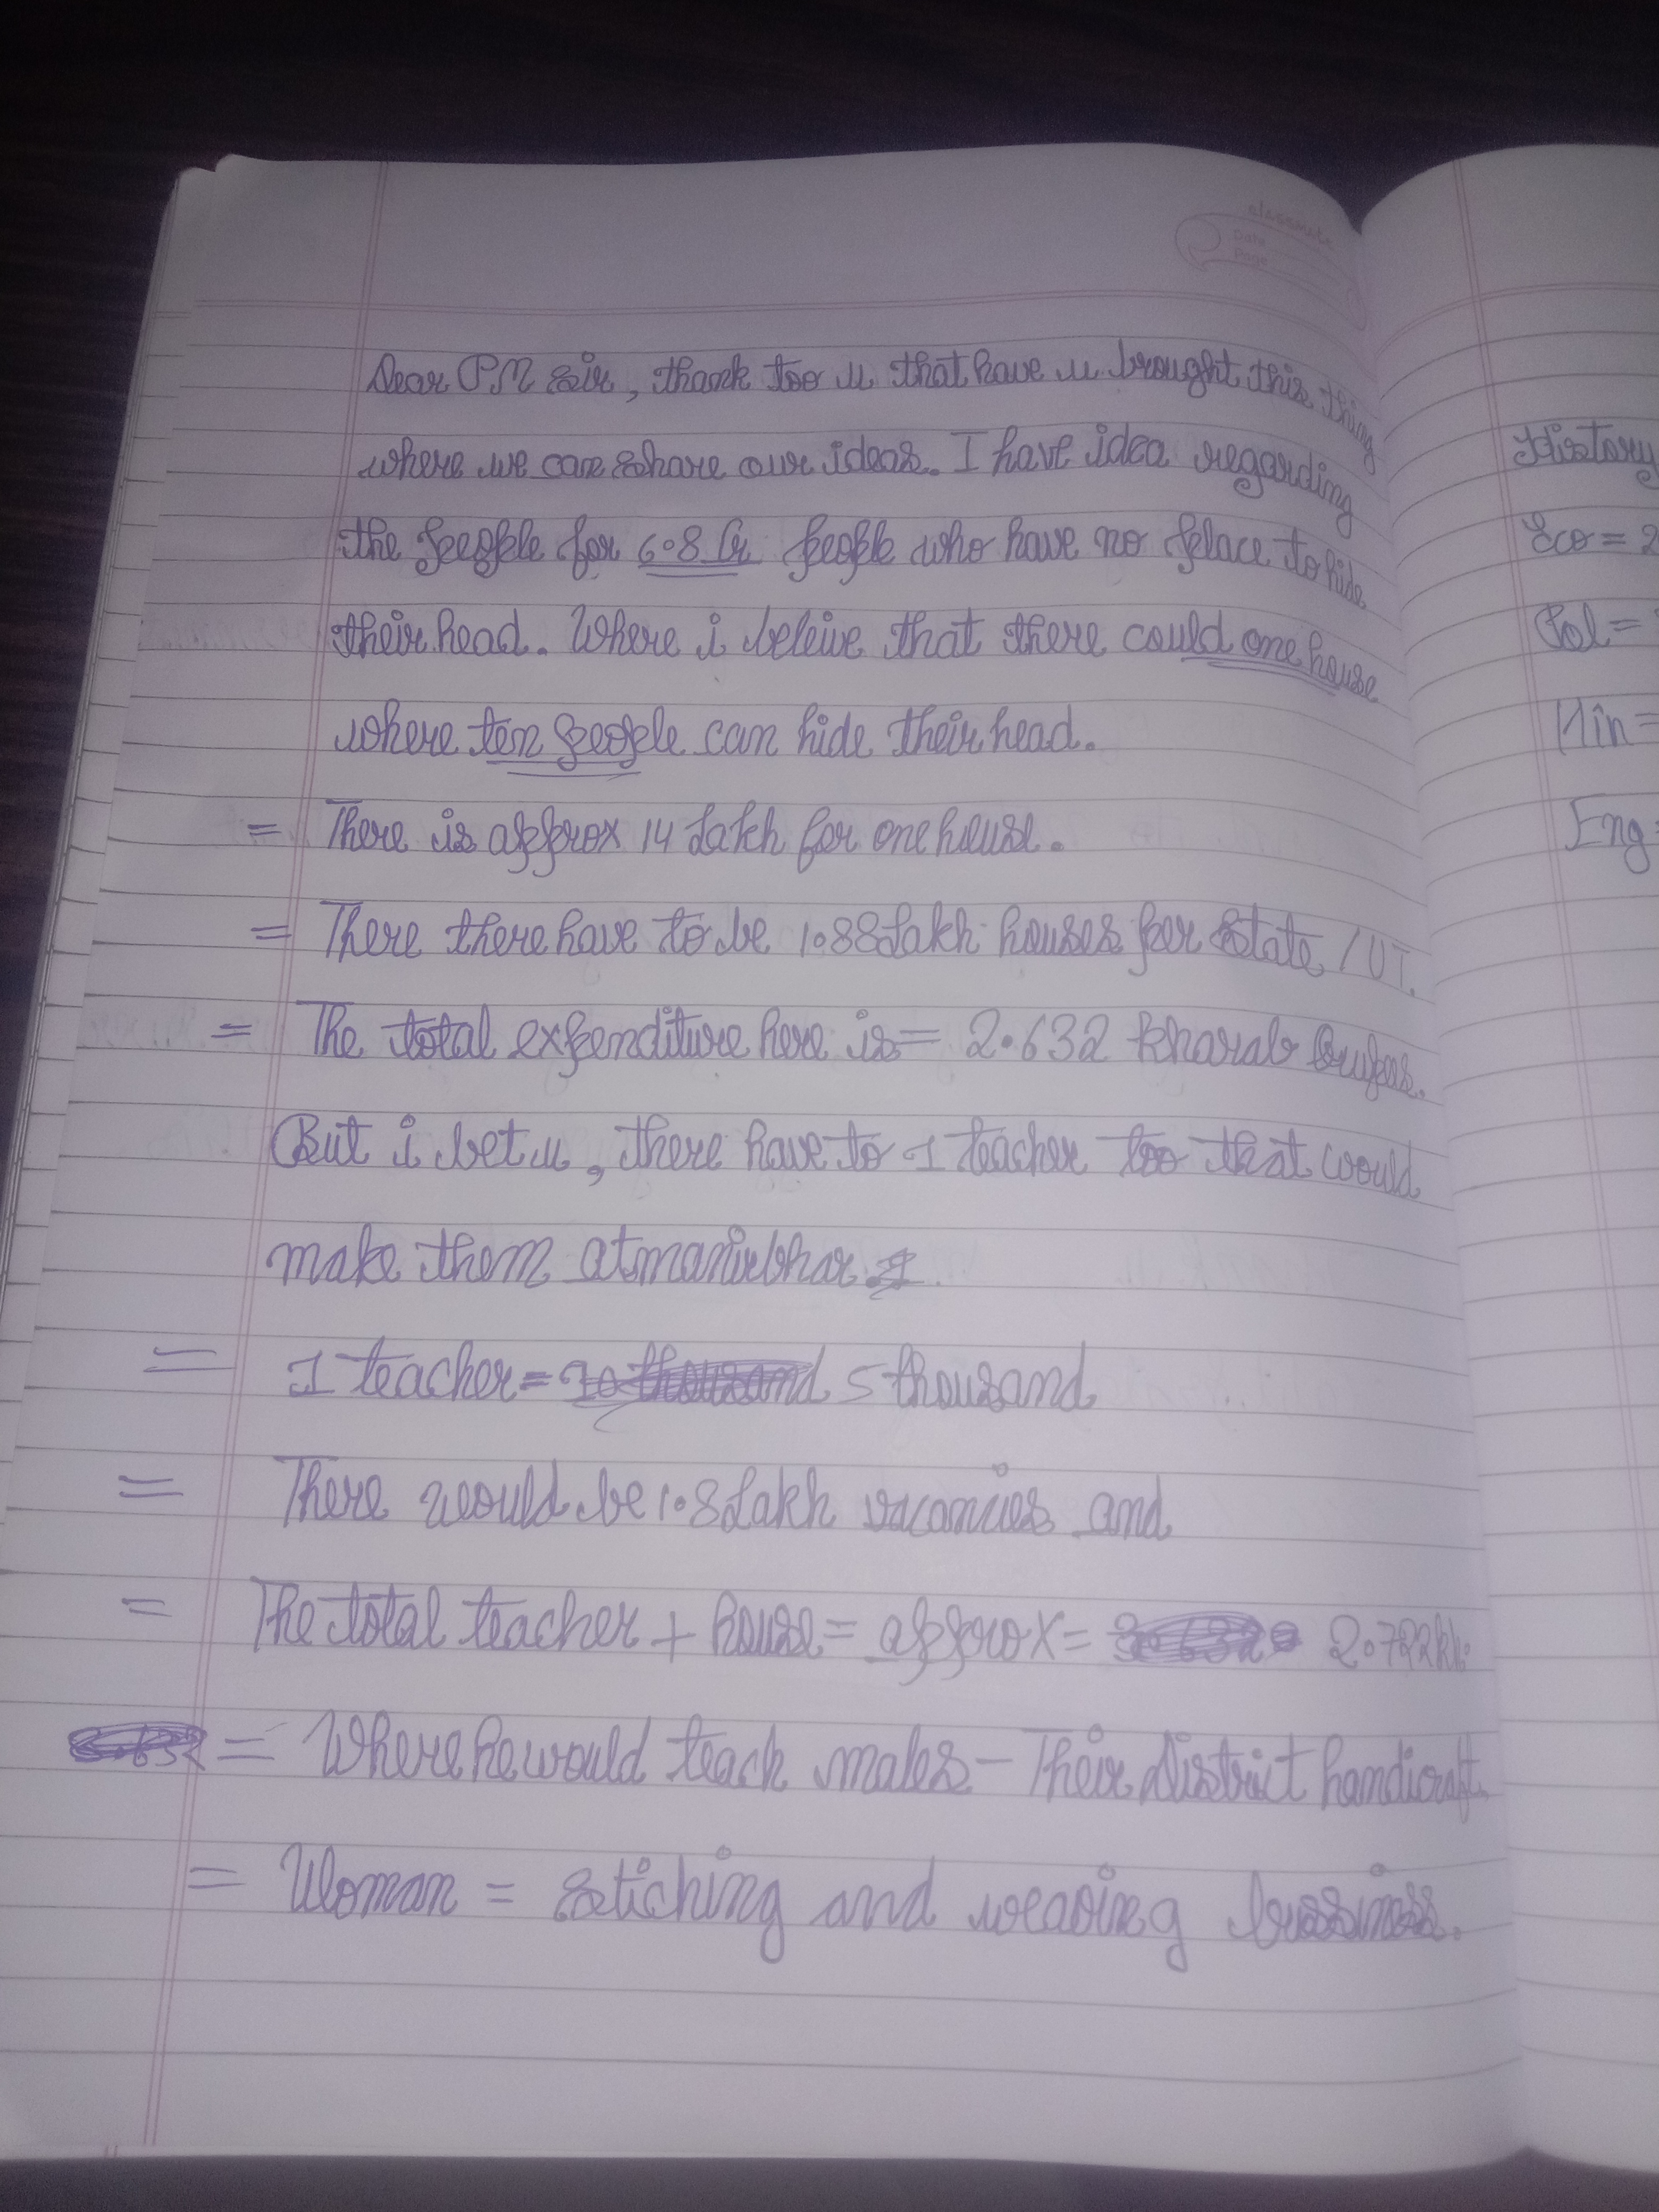 classmate
Date
Page
Dear PM sir, thank too u that have u brought this thing
where we can share our ideas. I have idea regarding
the people for 6.8 Cr people who have no place to hide
their head. Where i beleive that there could one house
where ten people can hide their head.
= There is approx 14 Lakh for one house.
= There there have to be 1.88 Lakh houses per state / UT.
= The total expenditure here is = 2.632 kharab
But i bet u, there have to 1 teacher too that would
make them atmanirbhar
= 1 teacher = 10 thousand 5 thousand
= There would be 1.8 Lakh vacancies and
= The total teacher + house = approx = 2.722kh.
= Where he would teach males - Their District handicraft
= Woman = stiching and weaving
History
Eco = 2
Pol =
Hin =
Eng